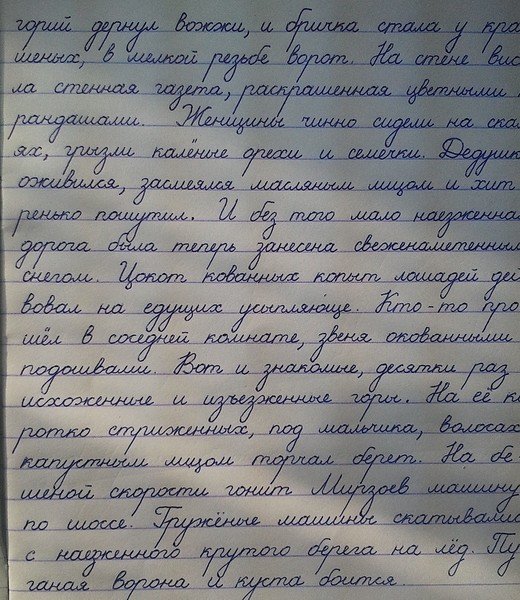 горий дернул вожжи, и бричка стала у кра
шеных, в мелкой резьбе ворот. На стене вис
ла стенная газета, раскрашенная цветными
рандашами. Женщины чинно сидели на ска
ях, грызли калёные орехи и семечки. Дедушк
оживился, засмеялся масляным лицом и хит
ренько пошутил. И без того мало наезженна
дорога была теперь занесена свеженаметенным
снегом. Цокот кованных копыт лошадей дей
вовал на едущих усыпляюще. Кто-то про
шёл в соседней комнате, звеня окованными
подошвами. Вот и знакомые, десятки раз
исхоженные и изъезженные горы. На её к
ротко стриженных, под мальчика, волосах
капустным лицом торчал берет. На бе-
шеной скорости гонит Мирзоев машину
по шоссе. Гружёные машины скатывались
с наезженного крутого берега на лёд. Пу
ганая ворона и куста боится